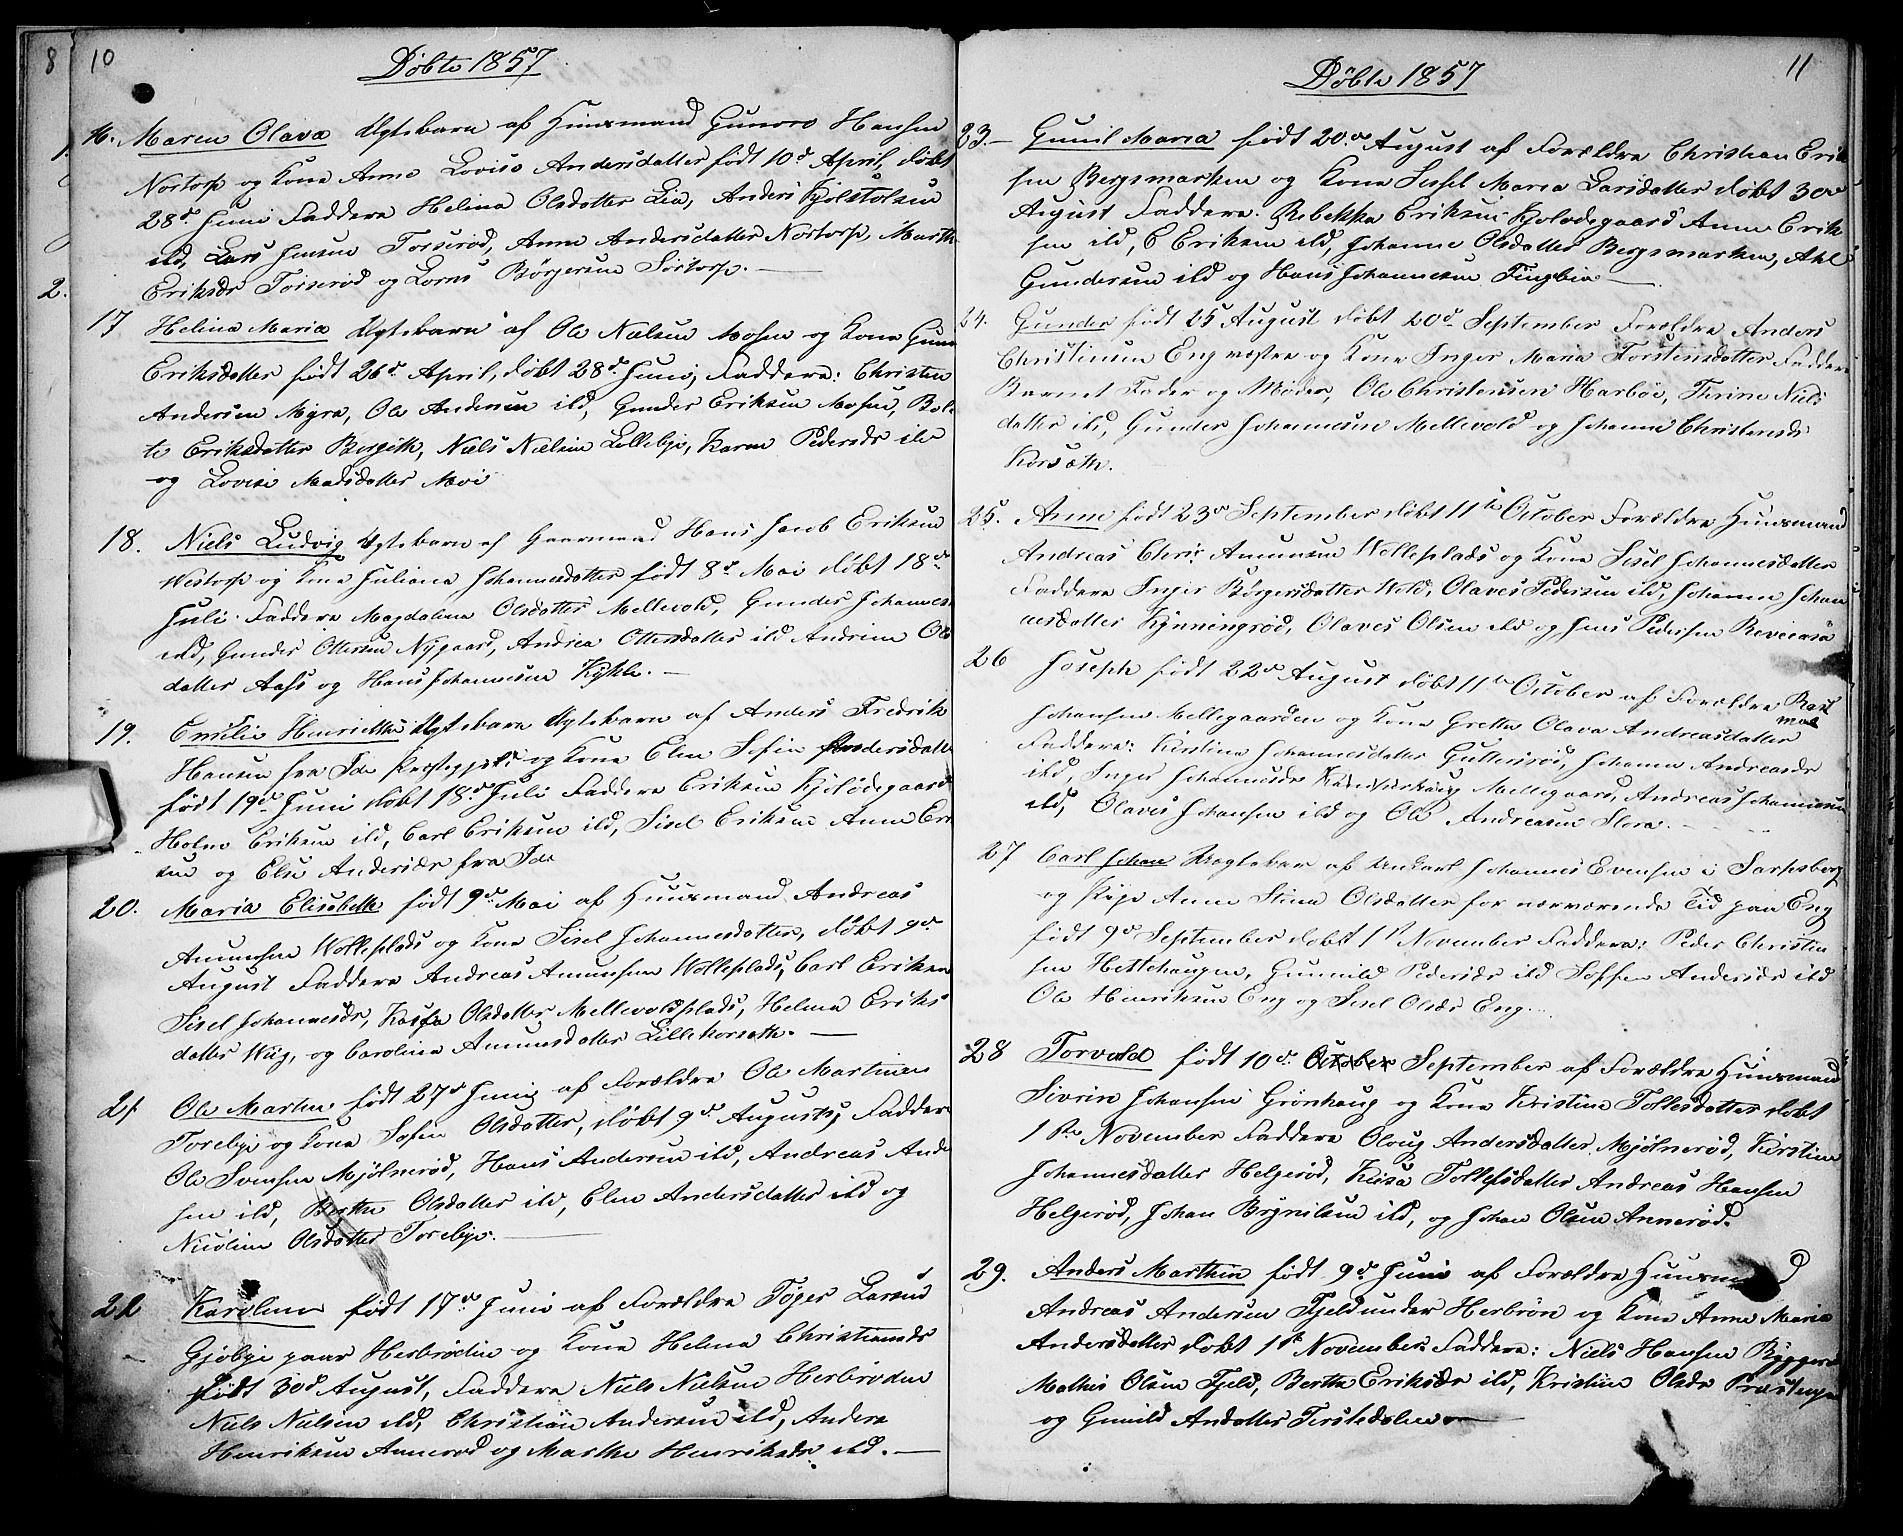 8
10
Döbte 1857
16. Maren Olava Ægtebarn af Huusmand Gunero Hansen
Nortorp og Kone Anne Lovise Andersdatter födt 10d April, döbt
28d Juni Faddere Helina Olsdatter Lie, Anders Kjölstolsen
ibd, Lars Jensen Torseröd, Anne Andersdatter Nortorp, Marth
Eriksdr Torseröd og Lorns Börgersen Sörtorp. —
2.
17 Helina Maria Ægtebarn af Ole Nielsen Mosen og Kone Gunn
Eriksdatter födt 26d April, döbt 28d Juni, Faddere: Christen
Andersen Myra, Ole Andersen ibd, Gunder Eriksen Mosen, Bol
te Eriksdatter Bergith, Niels Nielsen Lillebye, Karen Pedersdr ibd
og Lovise Madsdatter Moei
18. Niels Ludvig Ægtebarn af Gaarmand Hans Jacob Eriksen
Westorp og Kone Juliana Johannesdatter födt 8d Mai döbt 18de
Juli. Faddere Magdalena Olsdatter Mellevold, Gunder Johannes
ibd, Gunder Ottersen Nygaard, Andrea Ottersdatter ibd Andrine Ols
datter Aass og Hans Johannesen Kykle. —
19. Emilie Henriette Ægtebarn Ægtebarn af Anders Fredrik
Hansen fra Ide Præstegjeld og Kone Elen Sofie Andersdatte
födt 19de Juni döbt 18d Juli Faddere Eriksen Kjölödegaard
Holm Eriksen ibd, Carl Eriksen ibd, Sisel Eriksen Anne Erik
sen og Else Andersdr fra Ide
20. Maria Elisabeth födt 9de Mai af Huusmand Andreas
Amundsen Wolleplads og Kone Sisel Johannesdatter, döbt 9de
August Faddere Andreas Amundsen Wolleplads, Carl Eriksen
Sisel Johannesdr, Kaisa Olsdatter Mellevoldsplads, Helena Eriks
datter Wiig, og Carolina Amundsdatter Lillekorsæth. —
21 Ole Martin födt 27d Juni af Forældre Ole Martines
Torebye og Kone Sofie Olsdatter, döbt 9de August, Fadder
Ole Svensen Mjölneröd, Hans Andersen ibd, Andreas Ande
sen ibd, Berthe Olsdatter ibd, Elen Andersdatter ibd og
Nicoline Olsdatter Torebye. —
22 Karoline födt 17de Juni af Forældre Töger Larsen
Gjöbye paa Herbröden og Kone Helena Christiansdr
födt 30d August, Faddere Niels Nielsen Herbröden
Niels Nielsen ibd, Christian Andersen ibd, Anders
Henriksen Anneröd og Marthe Henriksdr. ibd. —
11
Döbte 1857
23. — Gunil Maria födt 20de August af Forældre Christian Erik
sen Bergsmarken og Kone Sissel Maria Larsdatter döbt 30de
August Faddere. Rebekka Eriksen Kjolödegaard Anne Erik
sen ibd, C Eriksen ibd, Johanne Olsdatter Bergsmarken, Axl
Gundersen ibd og Hans Johannesen Tingbie —
24. Gunder födt 25 August döbt 20de September Forældre Anders
Christensen Eng westre og Kone Inger Maria Torstensdatter Faddere
Barnet Fader og Möder, Ole Christensen Harböe, Thrine Niels
datter ibd, Gunder Johannesen Mellevold og Johanne Christensdr
Korsæth.
25. Anne födt 23de September döbt 11te October Forældre Huusmand
Andreas Chris Amundsen Wolleplads og Kone Sisel Johannesdatter
Faddere Inger Börgersdatter Wold, Olaves Pedersen ibd, Johanne Johan
nesdatter Kynningröd, Olaves Olsen ibd og Jens Pedersen Reveaasa
26 Joseph födt 22de August döbt 11te October af Forældre Rast
mus
Johansen Mellegaarden og Kone Grethe Olava Andreasdatter
Faddere: Kirstine Johannesdatter Gutteröd, Johanne Andreasdr
ibd, Inger Johannesdr Mellegaard, Andreas Johannesen
ibd, Olaves Johansen ibd og Ole Andreasen Slora. —
27 Carl Johan Uægtebar af Unkarl Johannes Evensen i Sarpsborg
og Pige Anne Stina Olsdatter for nærværende Tid paa Eng
födt 9de September döbt 1st November Faddere: Peder Christen
sen Hettehaugen, Gunnild Pedersdr ibd Soffie Andersdr ibd
Ole Henriksen Eng og Sisel Olsdr Eng. —
28 Torvald födt 10de October September af Forældre Huusmand
Sivrin Johansen Grönhaug og Kone Kristine Tollesdatter döbt
1ste November Faddere Oloug Andersdatter Mjölneröd, Kirstine
Johannesdatter Helgeröd, Kaisa Tollefsdatter Andreas Hansen
Helgeröd, Johan Brynilsen ibd, og Johan Olsen Anneröd.
29. Anders Marthin födt 9de Juni af Forældre Huusmand
Andreas Andersen Fjeld under Herbröen og Kone Anne Maria
Andersdatter döbt 1st November Faddere: Niels Hansen Ryggerö
Mathis Olsen Fjeld, Berthe Eriksdr ibd, Kristine Olsdr Præstenge
og Gunild Andatter Tistedalen —